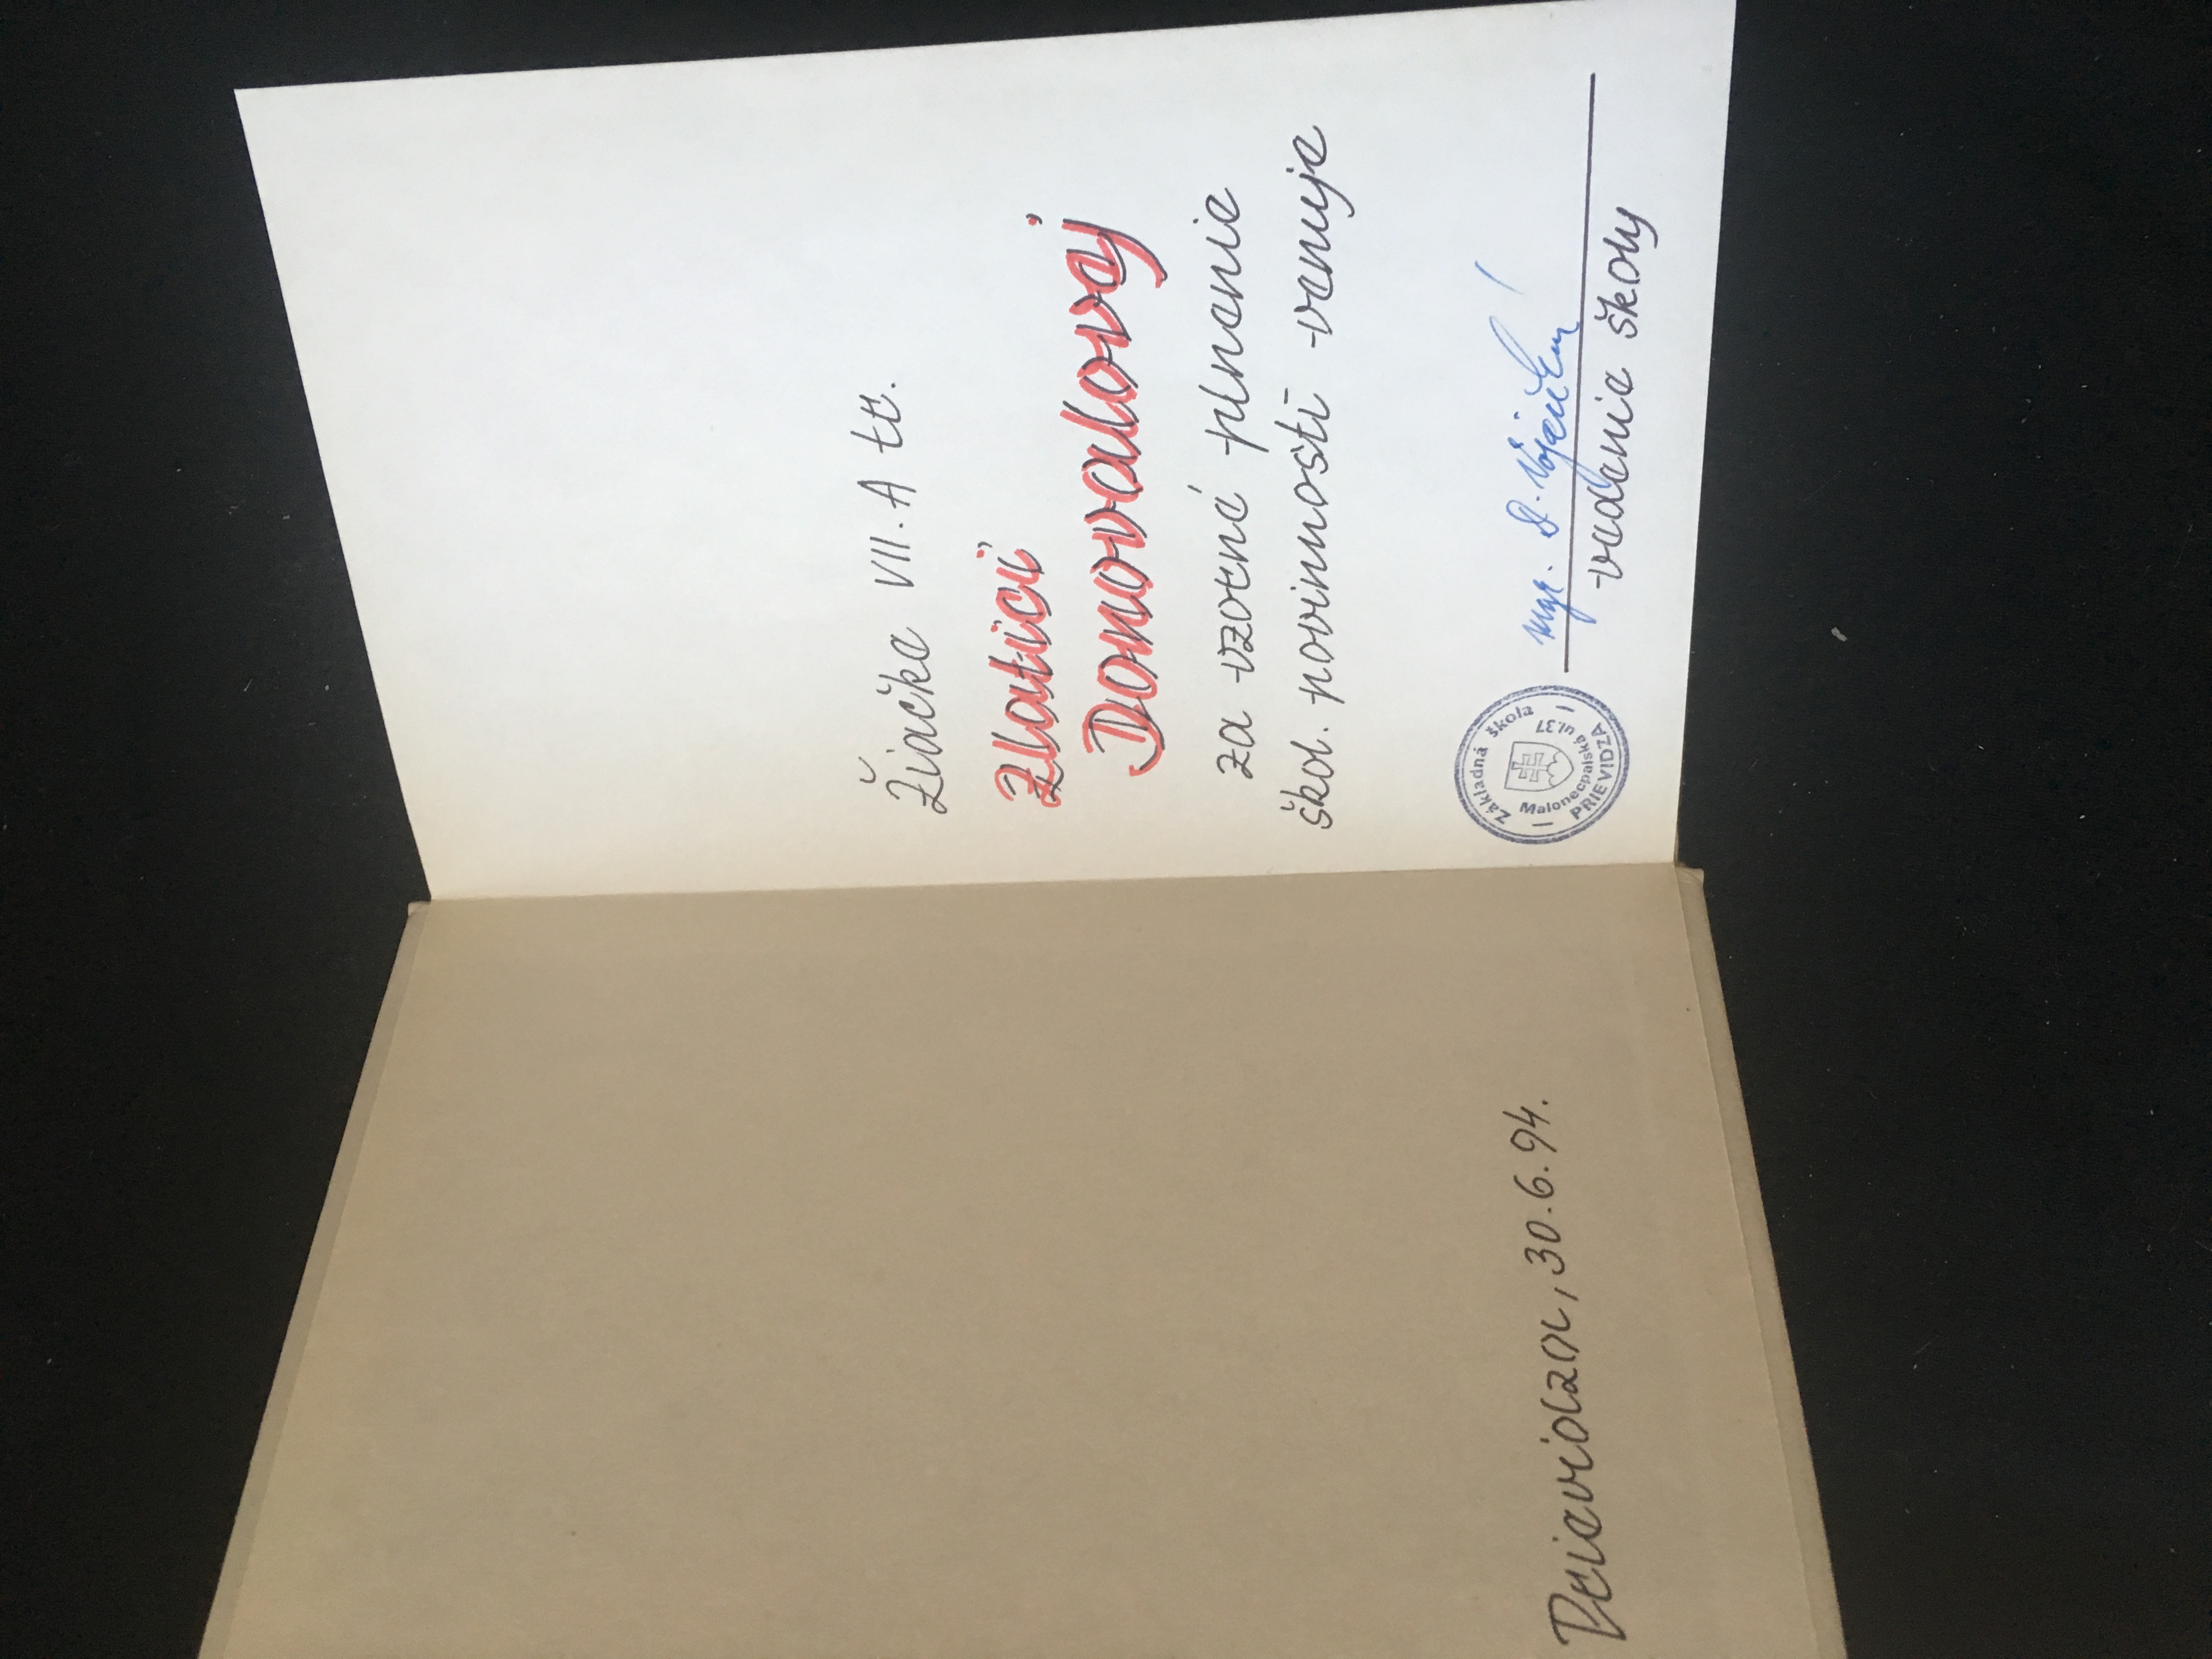 Prievidza, 30.6.94.
Žiačke VII. A tr.
Zlatici
Donovalovej
za vzorné plnenie
škol. povinností venuje
Mgr.
vedenie školy
Základná škola
Malonecpalská ul.37
PRIEVIDZA